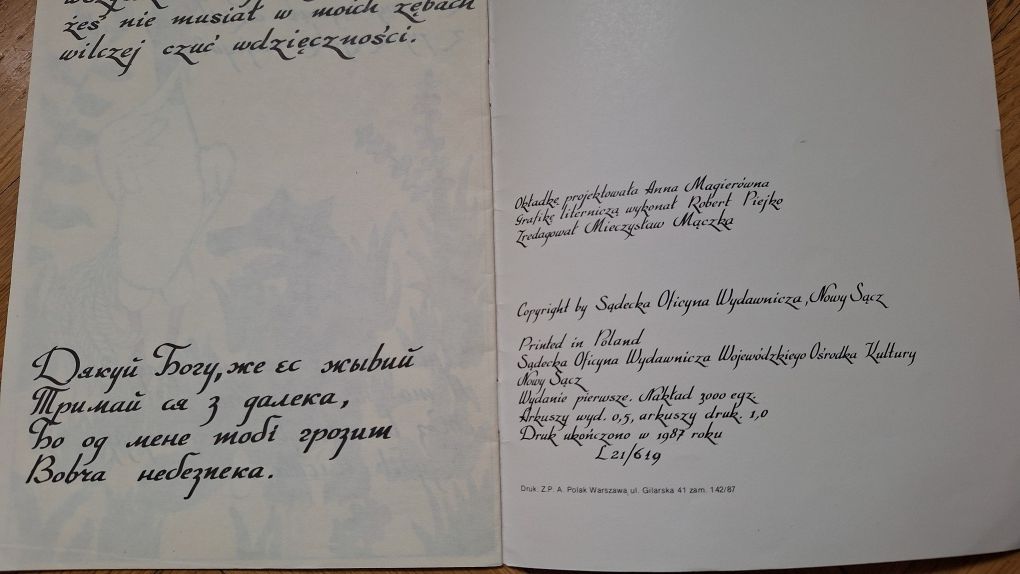 żeś nie musiał w moich zębach
wilczej czuć wdzięczności.
Дякуй Богу, же єс жывий
Тримай ся з далека,
Бо од мене тобі грозит
Вовча небезпека.
Okładkę projektowała Anna Magierówna
Grafikę literniczą wykonał Robert Piejko
Zredagował Mieczysław Mączka
Copyright by Sądecka Oficyna Wydawnicza, Nowy Sącz
Printed in Poland
Sądecka Oficyna Wydawnicza Wojewódzkiego Ośrodka Kultury
Nowy Sącz
Wydanie pierwsze. Nakład 3000 egz.
Arkuszy wyd. 0,5, arkuszy druk. 1,0
Druk ukończono w 1987 roku
L 21/619
Druk. Z.P. A. Polak Warszawa, ul. Gilarska 41 zam. 142/87